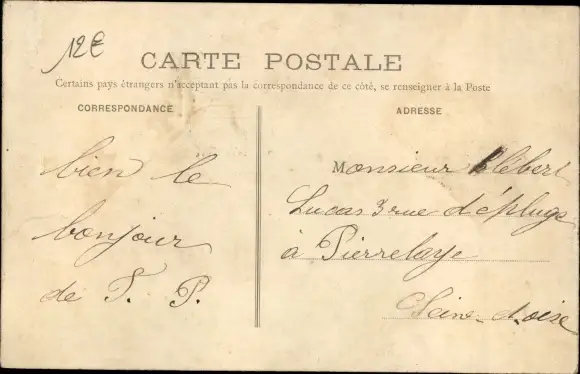 12€
CARTE POSTALE
Certains pays étrangers n'acceptant pas la correspondance de ce côté, se renseigner à la Poste
CORRESPONDANCE
bien le
bonjour
de T. P.
ADRESSE
Monsieur Klébert
Lucas 3 rue d'épluge
à Pierrelaye
Seine-et-oise